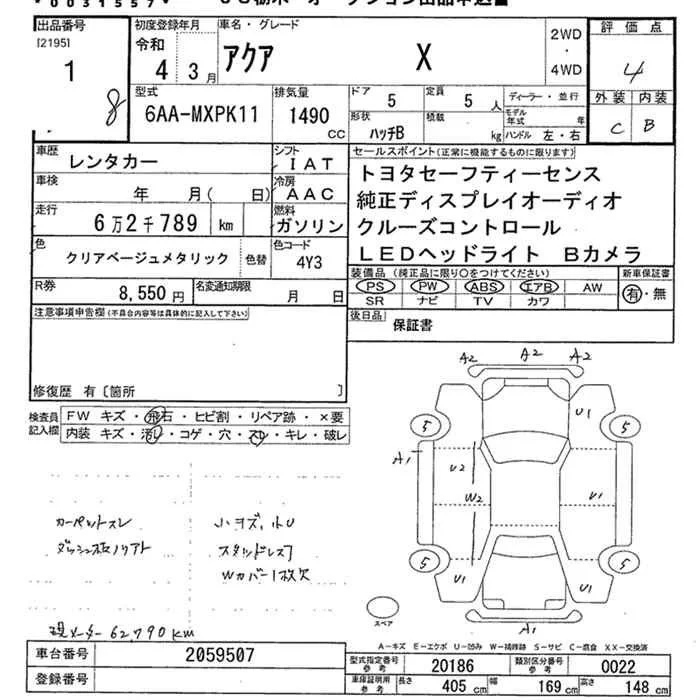 *0031557*
出品番号
[2195]
1
8
初度登録年月
令和
4 3月
車名・グレード
アクア X
2WD
・
4WD
評価点
4
外装 内装
C B
型式
6AA-MXPK11
排気量
1490
CC
ドア 5
定員 5 人
形状 ハッチB
積載 kg
ディーラー・並行
モデル年式 年
ハンドル 左・右
車歴 レンタカー
シフト IAT
車検 年 月( 日)
冷房 AAC
走行 6万2千789 km
燃料 ガソリン
色 クリアベージュメタリック 色替
色コード 4Y3
R券 8,550円
名変通知期限 月 日
セールスポイント(正常に機能するものに限ります)
トヨタセーフティーセンス
純正ディスプレイオーディオ
クルーズコントロール
LEDヘッドライト Bカメラ
装備品(純正品に限り○をつけてください)
PS PW ABS エアB AW
SR ナビ TV カワ
新車保証書
有・無
後日品 保証書
注意事項申告欄(不具合内容等は具体的に記入して下さい)
修復歴 有〔箇所 〕
検査員記入欄
FW キズ・飛石・ヒビ割・リペア跡・×要
内装 キズ・汚レ・コゲ・穴・スレ・キレ・破レ
カーペットスレ
ダッシュ板ノリアト
小キズ、小U
スタッドレス7
Wカバー1枚欠
現メーター 62,790km
A2 A2 A2
U1
5 5
A1
U2
W2
U1
5 5
U1 U1
A1
スペア
A-キズ E-エクボ U-凹み W-補修跡 S-サビ C-腐食 XX-交換済
車台番号 2059507
登録番号
型式指定番号 参考 20186
類別区分番号 参考 0022
車庫証明用 参考
長さ 405 cm
幅 169 cm
高さ 148 cm